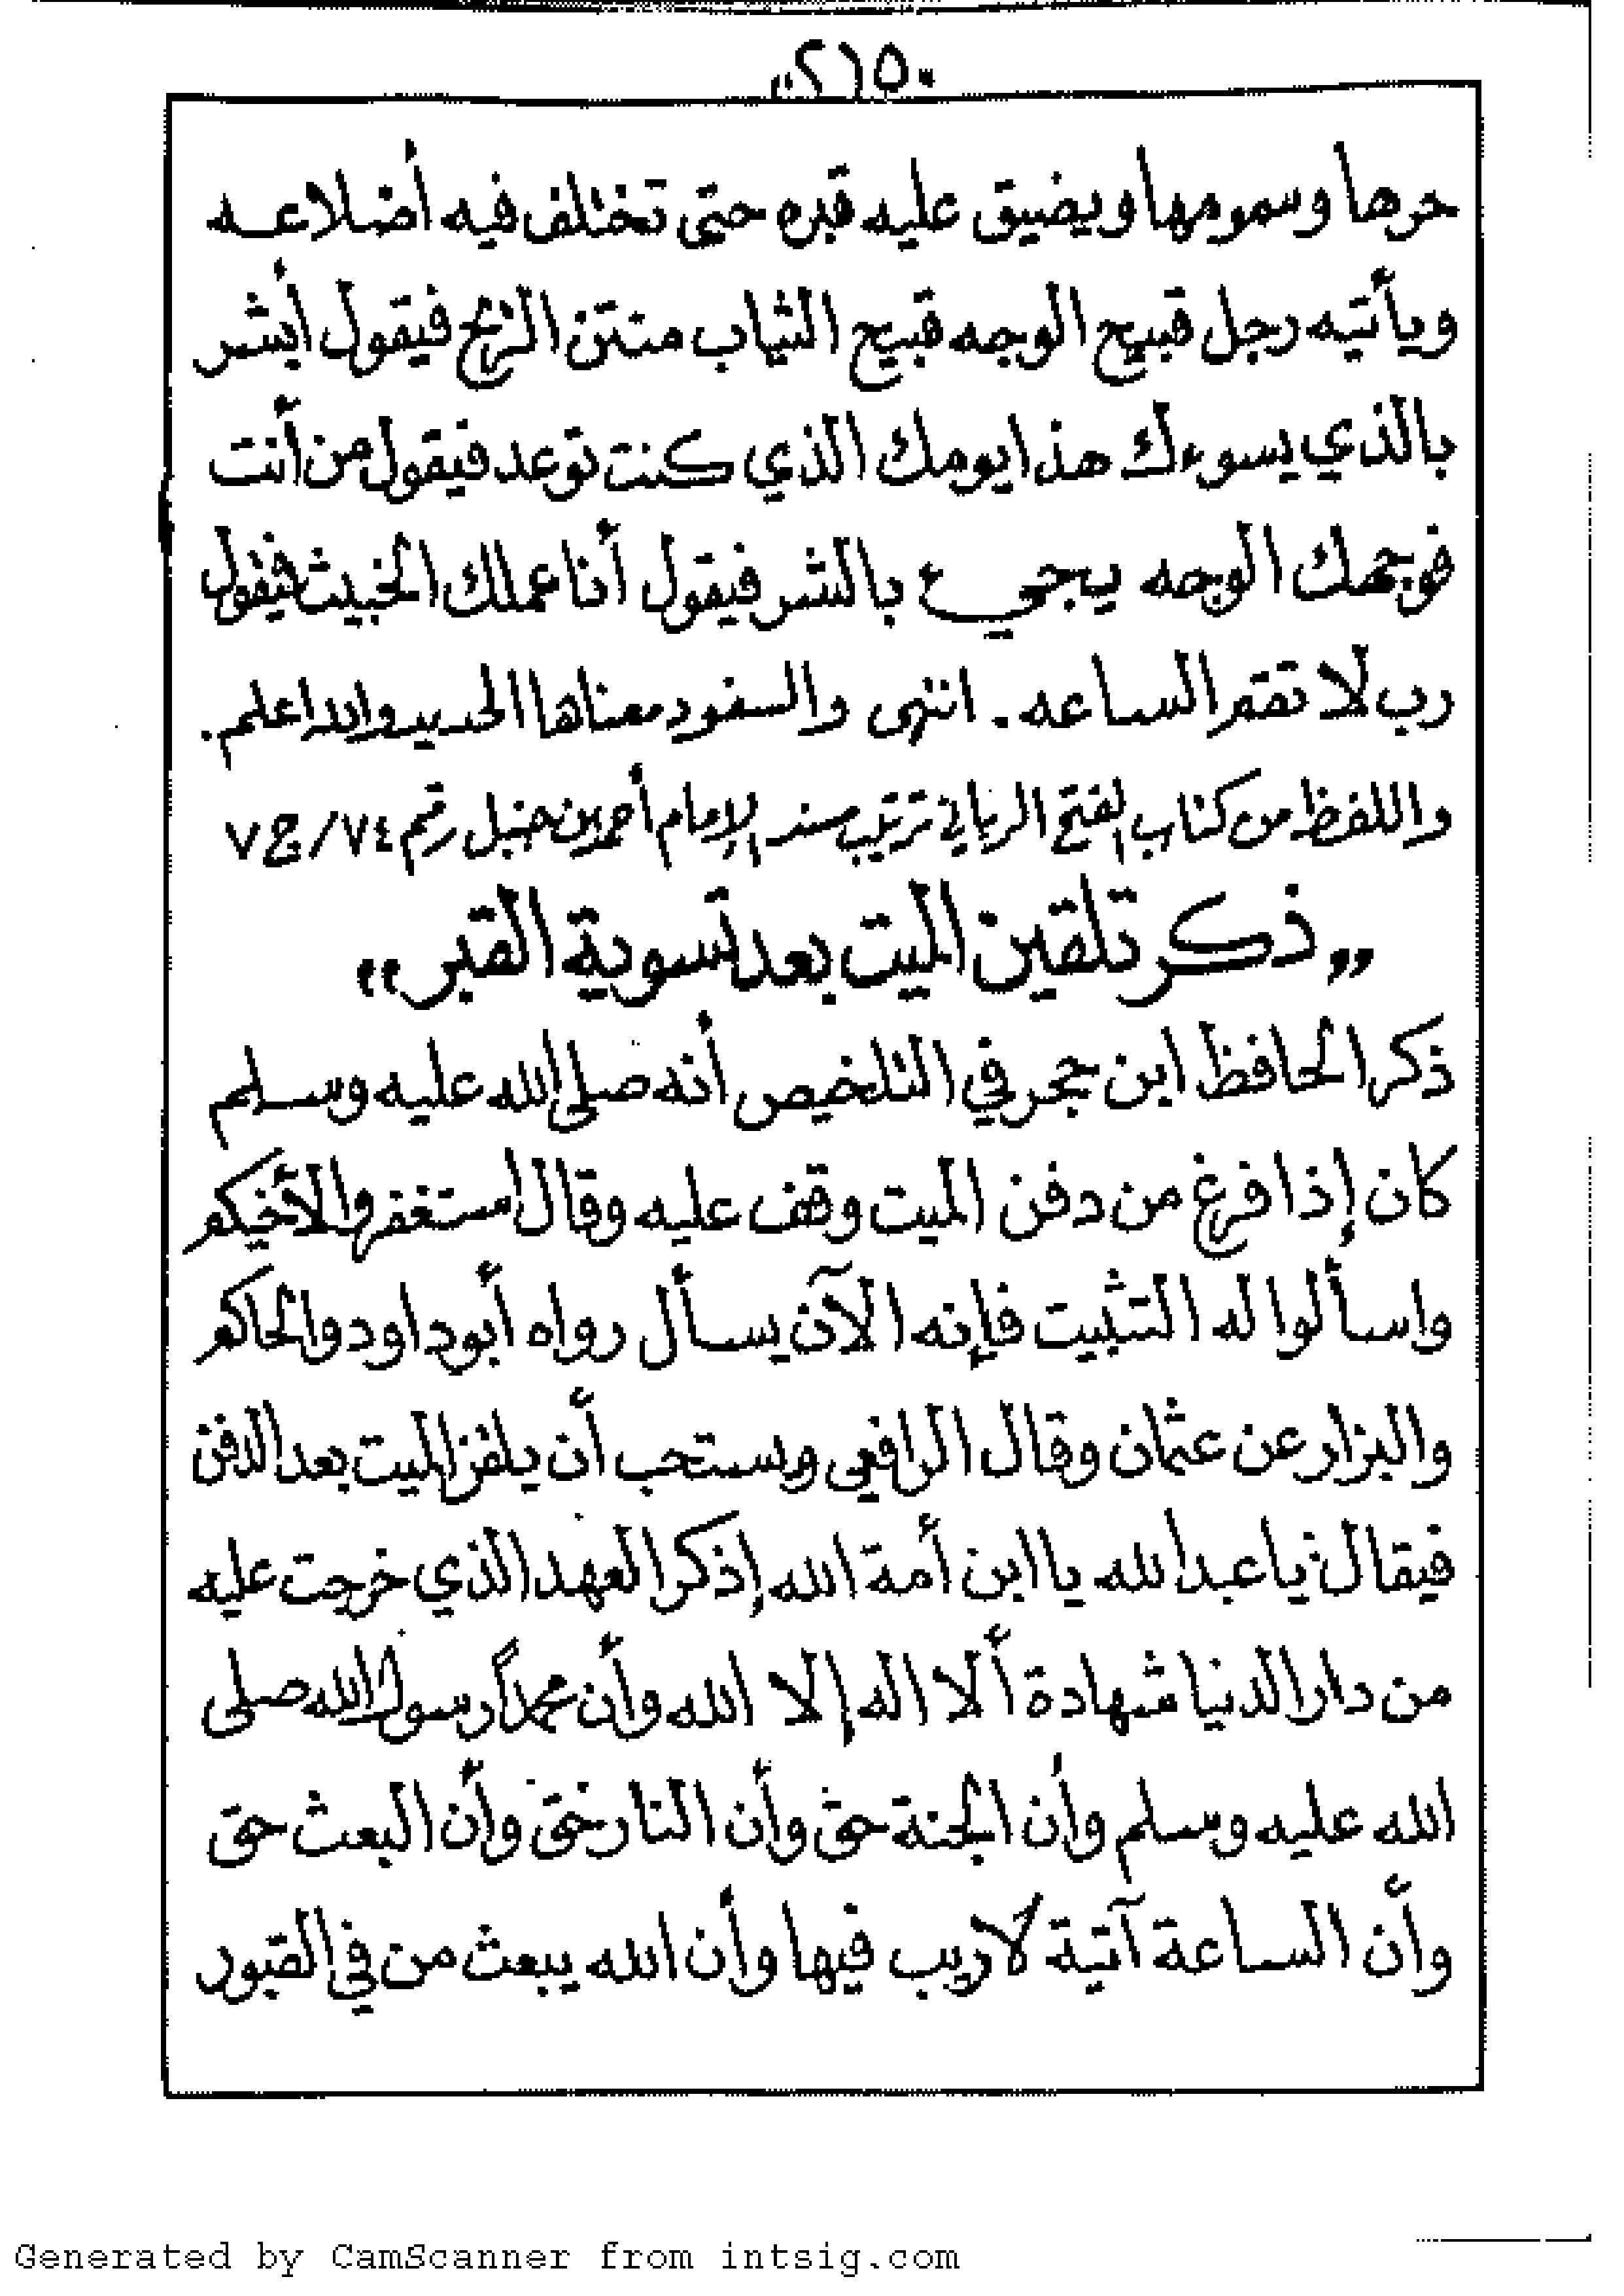 "٢١٥"
حرها وسمومها ويضيق عليه قبره حتى تختلف فيه أضلاعه
ويأتيه رجل قبيح الوجه قبيح الثياب منتن الريح فيقول أبشر
بالذي يسوءك هذا يومك الذي كنت توعد فيقول من أنت
فوجهك الوجه يجيء بالشر فيقول أنا عملك الخبيث فيقول
رب لا تقم الساعه . انتهى والسفود معناها الحديد والله اعلم .
واللفظ من كتاب الفتح الرباني ترتيب مسند الإمام أحمد بن حنبل رقم ٧٤/ج ٧
,, ذكر تلقين الميت بعد تسوية القبر ,,
ذكر الحافظ ابن حجر في التلخيص أنه صلى الله عليه وسلم
كان إذا فرغ من دفن الميت وقف عليه وقال استغفروا لأخيكم
واسألوا له التثبيت فإنه الآن يسأل رواه أبو داود والحاكم
والبزار عن عثمان وقال الرافعي ويستحب أن يلقن الميت بعد الدفن
فيقال يا عبد الله يا ابن أمة الله إذكر العهد الذي خرجت عليه
من دار الدنيا شهادة ألا اله إلا الله وأن محمداً رسول الله صلى
الله عليه وسلم وأن الجنة حق وأن النار حق وأن البعث حق
وأن الساعة آتية لا ريب فيها وأن الله يبعث من في القبور
Generated by CamScanner from intsig.com